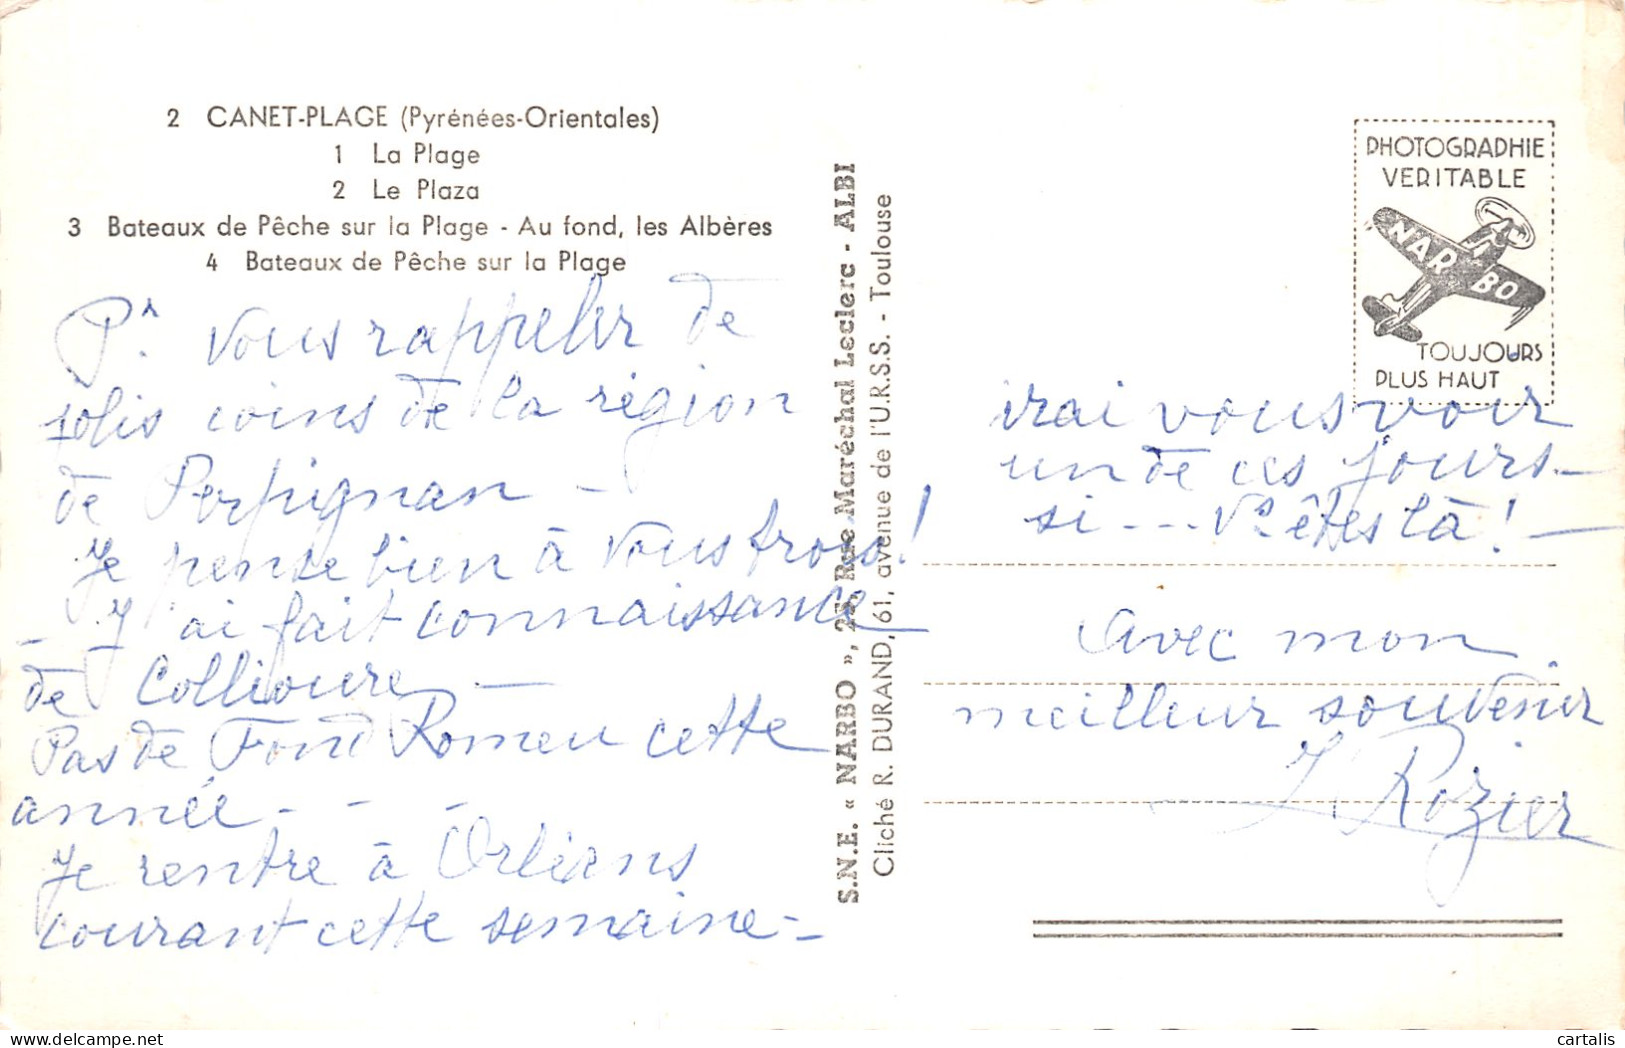 2 CANET-PLAGE (Pyrénées-Orientales)
1 La Plage
2 Le Plaza
3 Bateaux de Pêche sur la Plage - Au fond, les Albères
4 Bateaux de Pêche sur la Plage
Pr. vous rappeler de
jolis coins de la région
de Perpignan -
Je pense bien à vous trois!
- J'ai fait connaissance
de Collioure -
Pas de Fond Romeu cette
année - - -
Je rentre à Orléans
courant cette semaine -
S.N.E. « NARBO », 25, Rue Maréchal Leclerc - ALBI
Cliché R. DURAND, 61, avenue de l'U.R.S.S. - Toulouse
PHOTOGRAPHIE
VERITABLE
NARBO
TOUJOURS
PLUS HAUT
irai vous voir
un de ces jours -
si --- Vs êtes là! -
avec mon
meilleur souvenir
Rozier
cartalis
delcampe.net